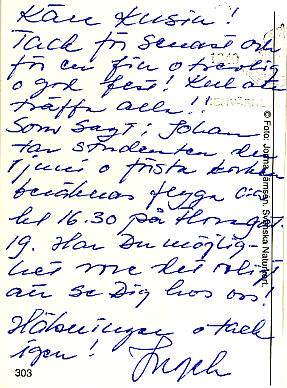 Käre Kusin!
Tack för senast och
för en fin o trevlig
o god fest! Kul att
träffa alla!!
Som sagt; Johan
tar studenten den
7 juni o första korken
beräknas flyga ca
kl 16.30 på
19. Har Du möjlig-
het vore det roligt
att se Dig hos oss!
Hälsningar o tack
igen!
303
© Foto: Jorma Jämsen, Svenska Naturfoto.